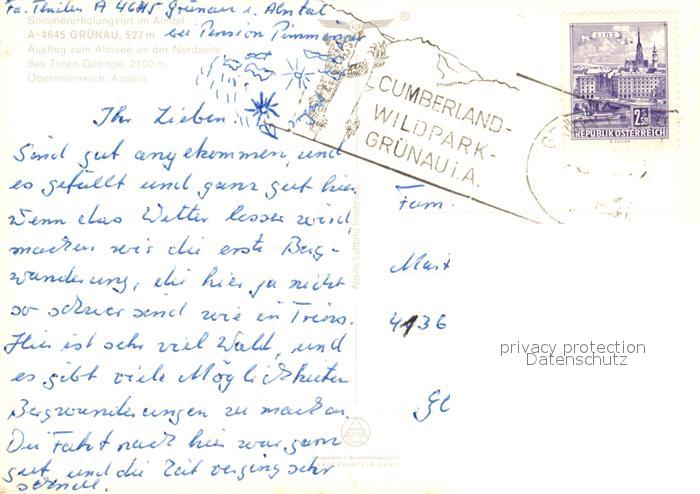 Fa. Thilen A 4645 Grünau i. Almtal
bei Pension Pimminger
Sommererholungsort im Almtal
A-4645 GRÜNAU, 527 m
Ausflug zum Almsee an der Nordseite
des Toten Gebirge, 2100 m,
Oberösterreich, Austria
LINZ
2.50
REPUBLIK ÖSTERREICH
CUMBERLAND-
WILDPARK-
GRÜNAU i.A.
Ihr Lieben!
Sind gut angekommen, und
es gefällt und ganz gut hier.
Wenn das Wetter besser wird,
machen wir die erste Berg-
wanderung, die hier ja nicht
so schwer sind wie in Tirol.
Hier ist sehr viel Wald, und
es gibt viele Möglichkeiten
Bergwanderungen zu machen.
Die Fahrt nach hier war ganz
gut, und die Zeit verging sehr
schnell.
Fam.
4136
privacy protection
Datenschutz
Alpine Luftbild Innsbruck